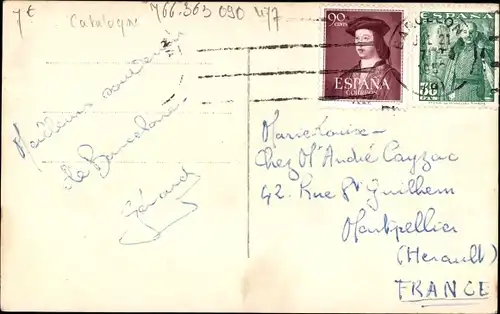 7€
Catalogne
766.363 090 477
90
CENTS
ESPAÑA
CORREOS
BARCELONA
ESPAÑA
Meilleurs souvenirs
de Barcelone -
Gérard
Marie Louise -
Chez Mr André Cayzac
42. Rue St Guilhem
Montpellier
(Herault)
FRANCE